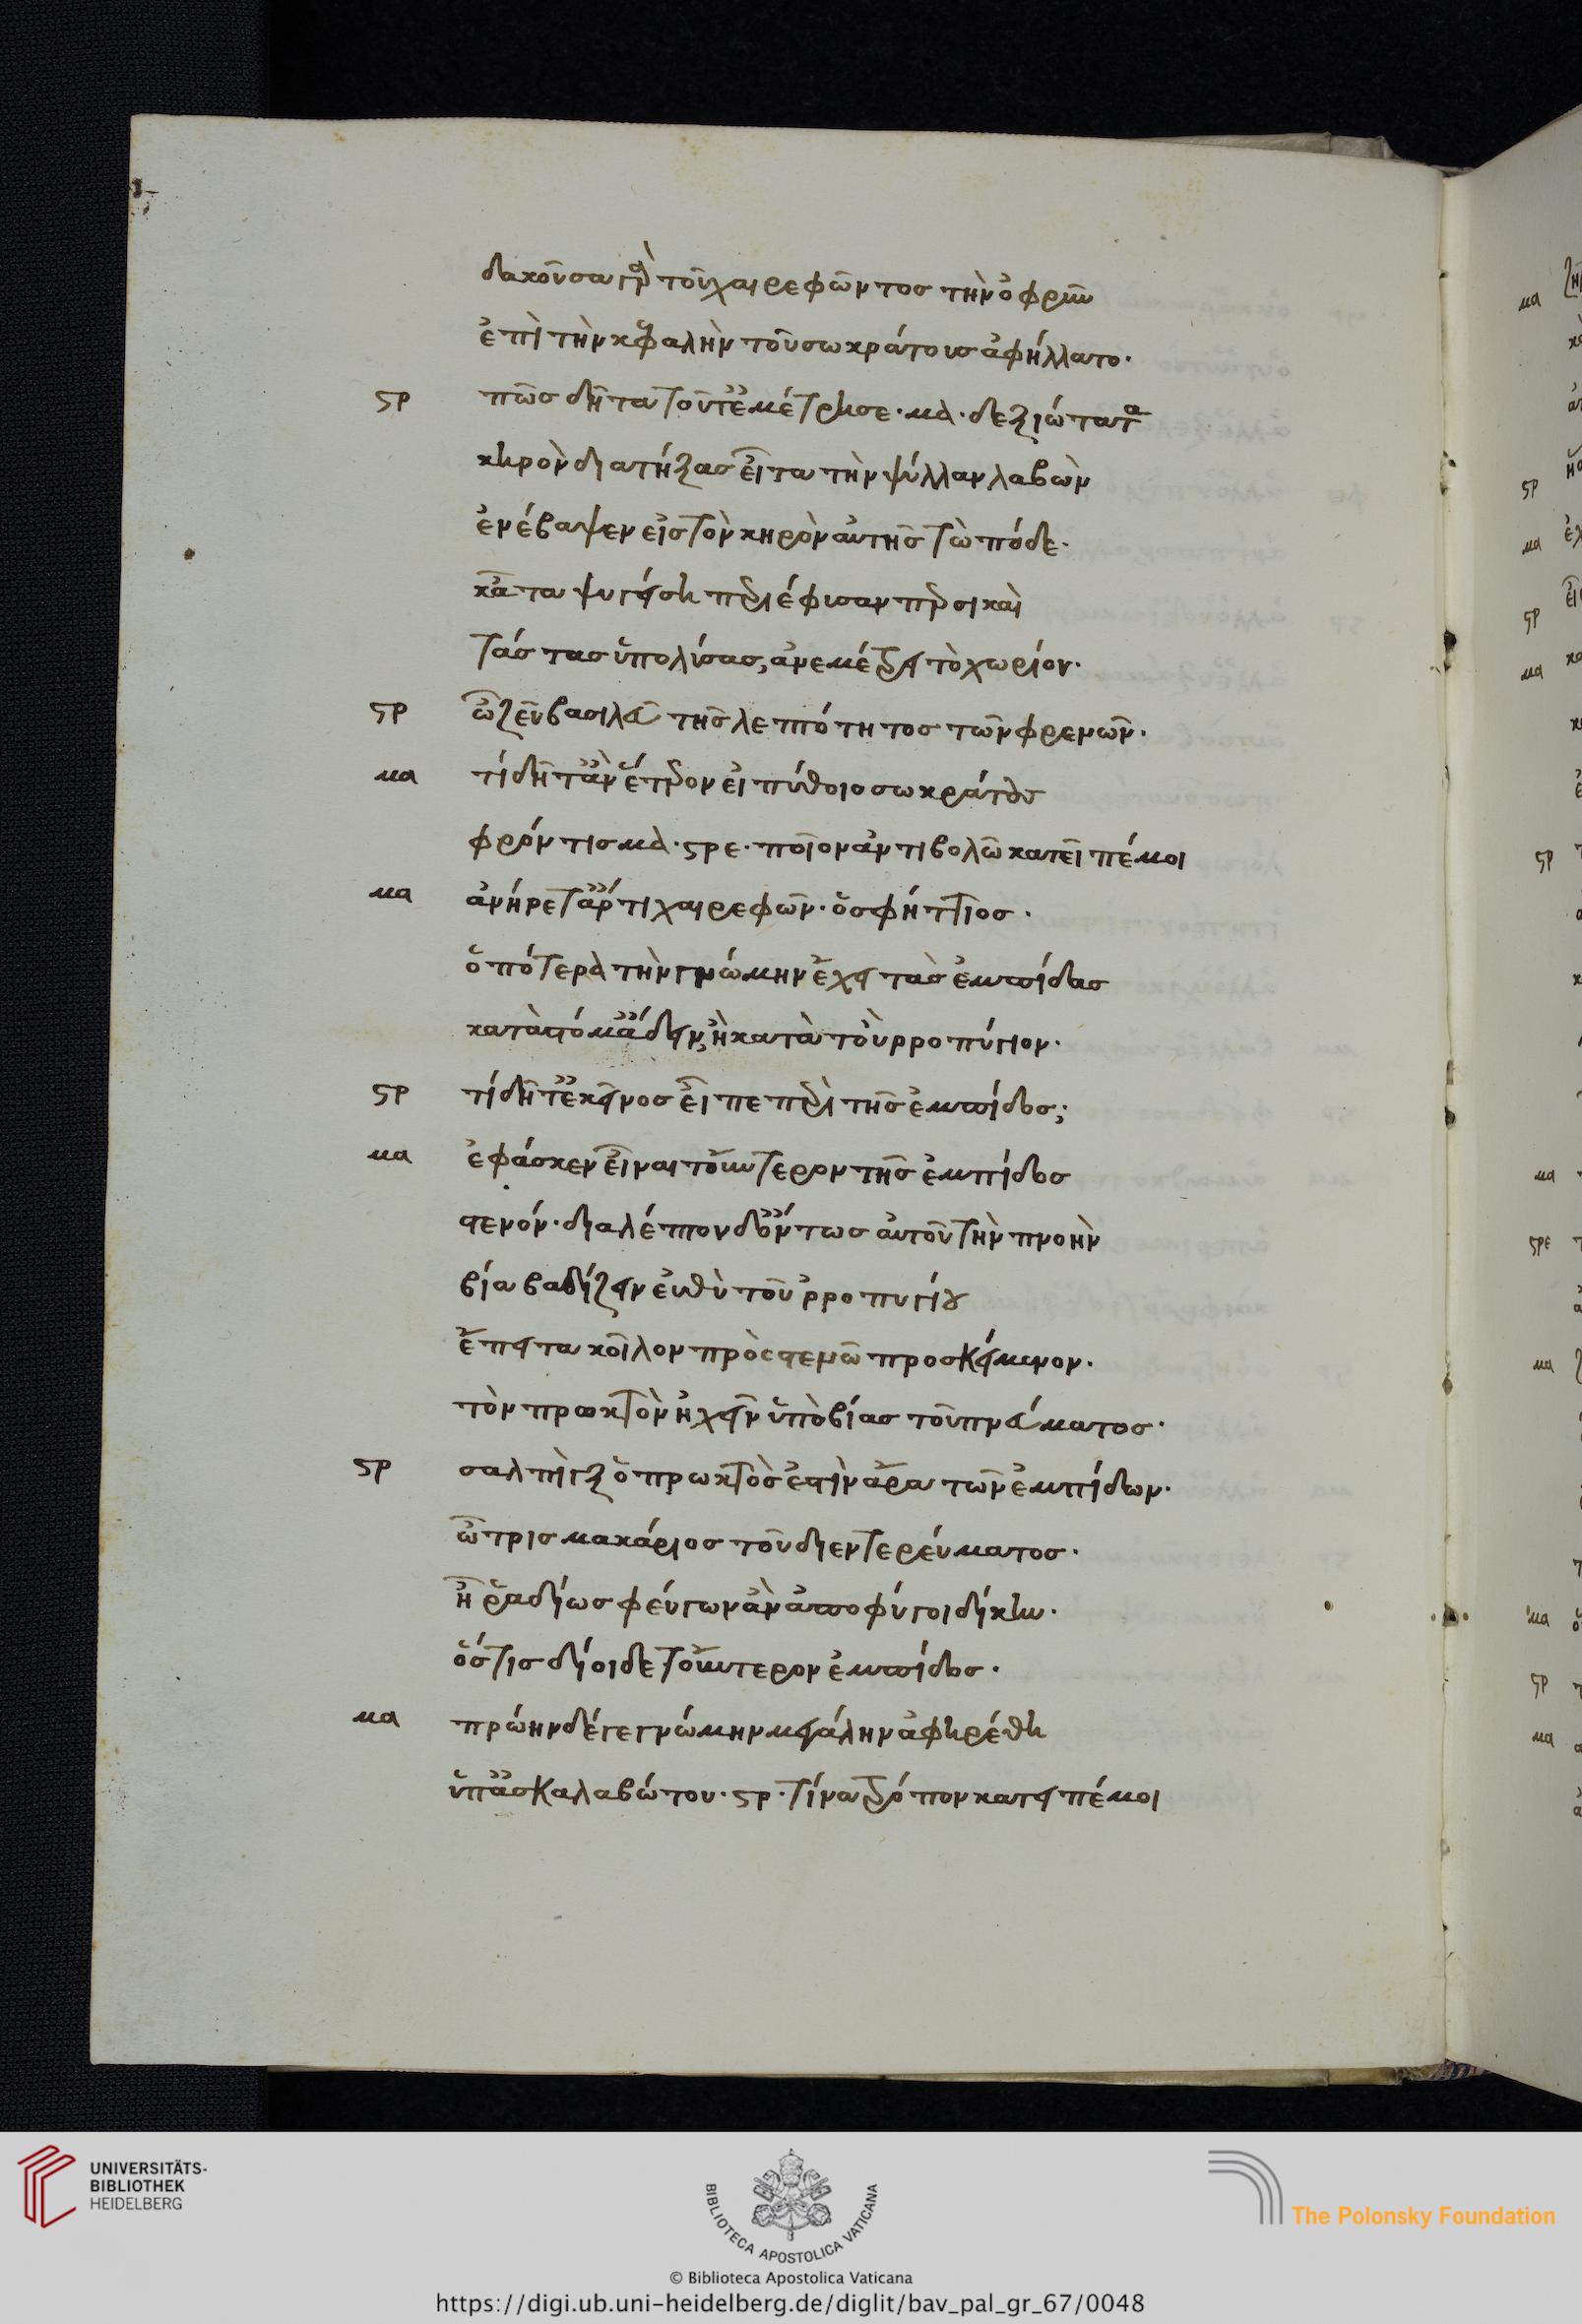 δακοῦσα γὰρ τοῦ χαιρεφῶντος τὴν ὀφρῦν
ἐπὶ τὴν κεφαλὴν τοῦ σωκράτους ἀφήλλατο·
στρ πῶς δῆτα τοῦτ' ἐμέτρησε· μα· δεξιώτατα
κηρὸν διατήξας εἶτα τὴν ψύλλαν λαβὼν
ἐνέβαψεν εἰς τὸν κηρὸν αὐτῆς τὼ πόδε·
κᾆτα ψυγείση περιέφυσαν περσικαὶ
ταύτας ὑπολύσας, ἀνεμέτρει τὸ χωρίον·
στρ ὦ ζεῦ βασιλεῦ τῆς λεπτότητος τῶν φρενῶν·
μα τί δῆτ' ἂν ἕτερον εἰ πύθοιο σωκράτους
φρόντισμα· στρε· ποῖον ἀντιβολῶ κατεῖπέ μοι
μα ἀνήρετ' ἄρτι χαιρεφῶν· ὁ σφήττιος·
ὁπότερα τὴν γνώμην ἔχει τὰς ἐμπίδας
κατὰ στόμ' ἄδειν, ἢ κατὰ τοὐρροπύγιον·
στρ τί δῆτ' ἐκεῖνος εἶπε περὶ τῆς ἐμπίδος;
μα ἔφασκεν εἶναι τοὔντερον τῆς ἐμπίδος
στενόν· διαλέπτου δ' ὄντος αὐτοῦ τὴν πνοὴν
βία βαδίζειν εὐθὺ τοῦ ὀρροπυγίου
ἔπειτα κοῖλον πρὸς στενῶ προσκείμενον·
τὸν πρωκτὸν ἠχεῖν ὑπὸ βίας τοῦ πνεύματος·
στρ σαλπὶγξ ὁ πρωκτός ἐστὶν ἄρα τῶν ἐμπίδων·
ὦ τρισμακάριος τοῦ διεντερεύματος·
ἦ ῥαδίως φεύγων ἂν ἀποφύγοι δίκην·
ὅστις δίοιδε τοὔντερον ἐμπίδος·
μα πρώην δέ γε γνώμην μεγάλην ἀφηρέθη
ὑπ' ἀσκαλαβώτου· στρ· τίνα τρόπον κάτειπέ μοι
UNIVERSITÄTS-
BIBLIOTHEK
HEIDELBERG
BIBLIOTECA APOSTOLICA VATICANA
The Polonsky Foundation
© Biblioteca Apostolica Vaticana
https://digi.ub.uni-heidelberg.de/diglit/bav_pal_gr_67/0048